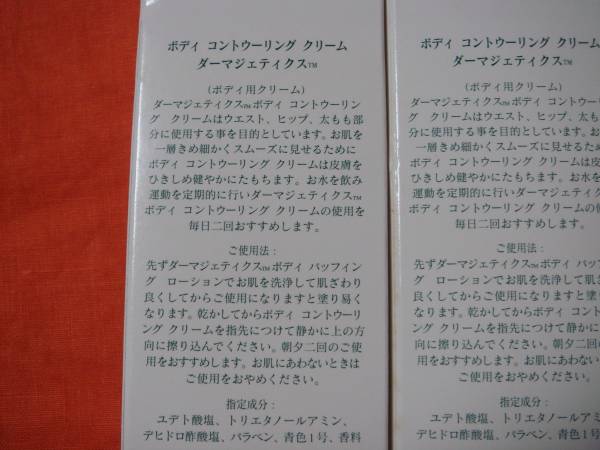 ボディ コントウーリング クリーム
ダーマジェティクス™
(ボディ用クリーム)
ダーマジェティクス™ボディ コントウーリン
グ クリームはウエスト、ヒップ、太もも部
分に使用する事を目的としています。お肌を
一層きめ細かくスムーズに見せるために
ボディ コントウーリング クリームは皮膚を
ひきしめ健やかにたもちます。お水を飲み
運動を定期的に行いダーマジェティクス™
ボディ コントウーリング クリームの使用を
毎日二回おすすめします。
ご使用法:
先ずダーマジェティクス™ボディ バッフィン
グ ローションでお肌を洗浄して肌ざわり
良くしてからご使用になりますと塗り易く
なります。乾かしてからボディ コントウーリ
ング クリームを指先につけて静かに上の方
向に擦り込んでください。朝夕二回のご使
用をおすすめします。お肌にあわないときは
ご使用をおやめください。
指定成分:
ユデト酸塩、トリエタノールアミン、
デヒドロ酢酸塩、パラベン、青色1号、香料
ボディ コントウーリング クリーム
ダーマジェティクス™
(ボディ用クリーム)
ダーマジェティクス™ボディ コントウー
グ クリームはウエスト、ヒップ、太もも
分に使用する事を目的としています。お
一層きめ細かくスムーズに見せるため
ボディ コントウーリング クリームは皮
ひきしめ健やかにたもちます。お水を飲
運動を定期的に行いダーマジェティク
ボディ コントウーリング クリームの使
毎日二回おすすめします。
ご使用法:
先ずダーマジェティクス™ボディ バッフ
グ ローションでお肌を洗浄して肌ざ
良くしてからご使用になりますと塗り
なります。乾かしてからボディ コントウ
ング クリームを指先につけて静かに
向に擦り込んでください。朝夕二回の
用をおすすめします。お肌にあわない
ご使用をおやめください。
指定成分:
ユデト酸塩、トリエタノールアミ
デヒドロ酢酸塩、パラベン、青色1号、